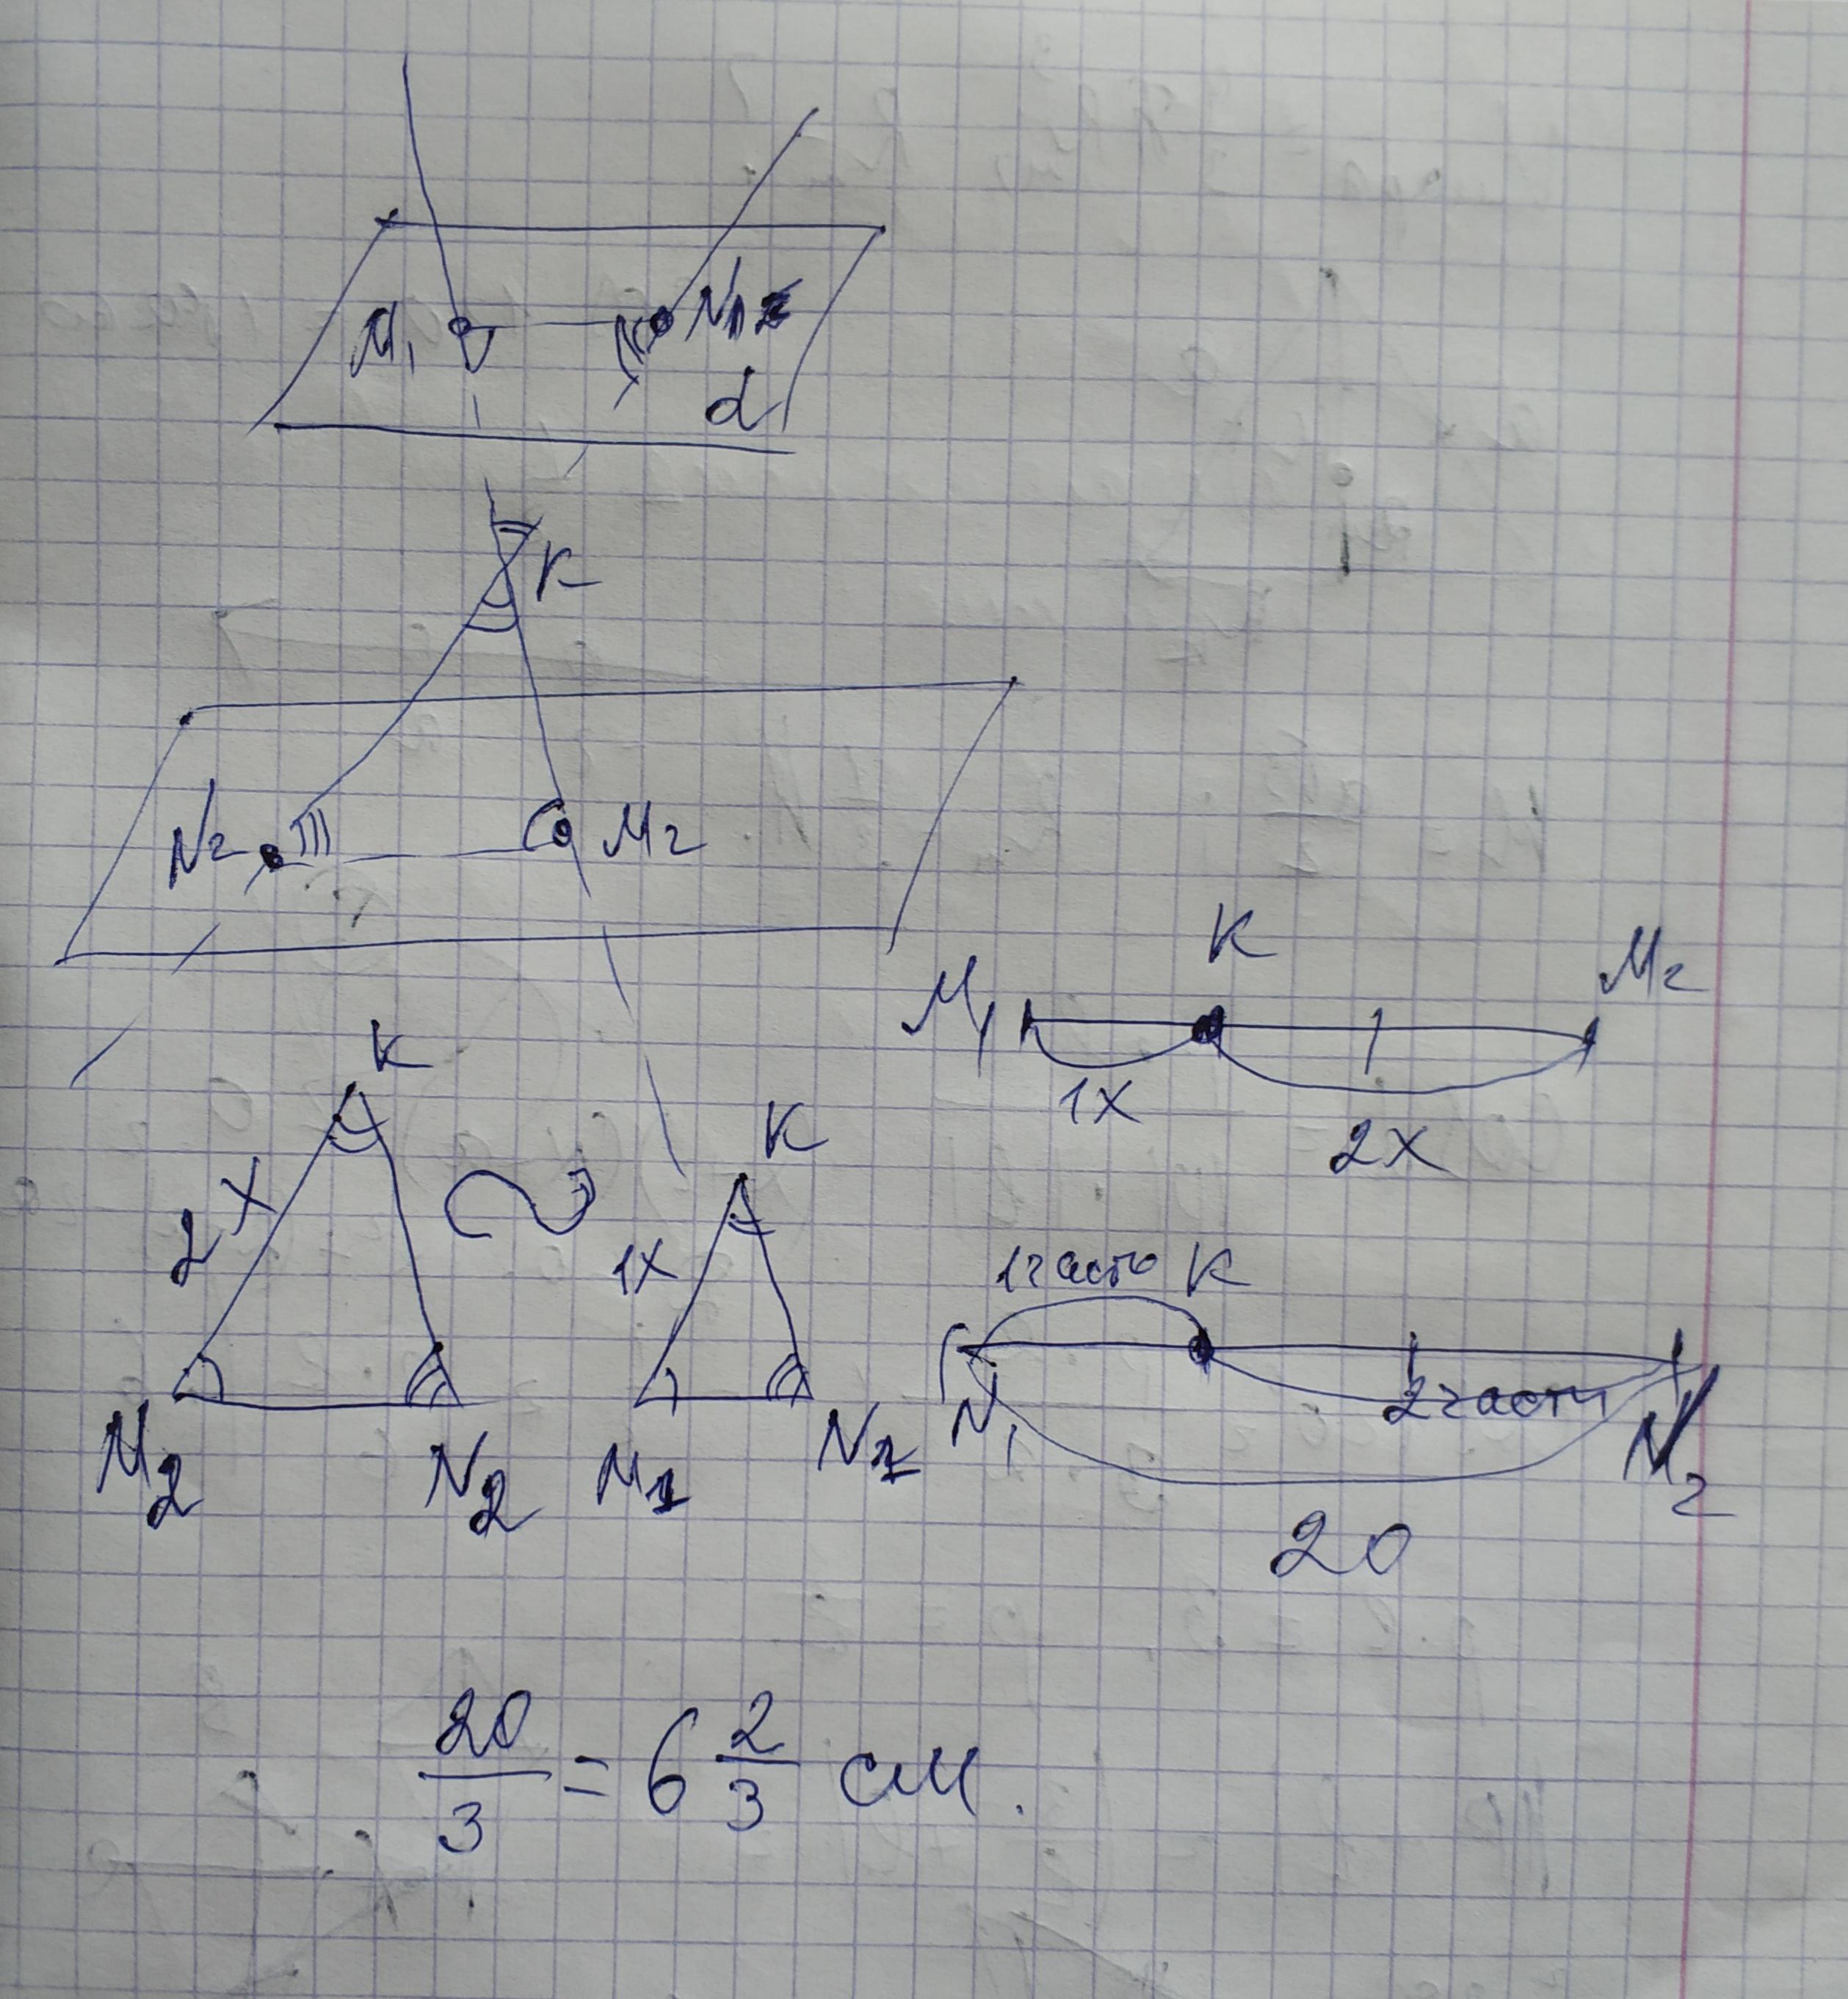 M₁ N₁
α
K
N₂ M₂
M₁ K M₂
1x 2x
K K
2x 1x
M₂ N₂ M₁ N₁
1 часть K
N₁ 2 части N₂
20
20/3 = 6 2/3 см.